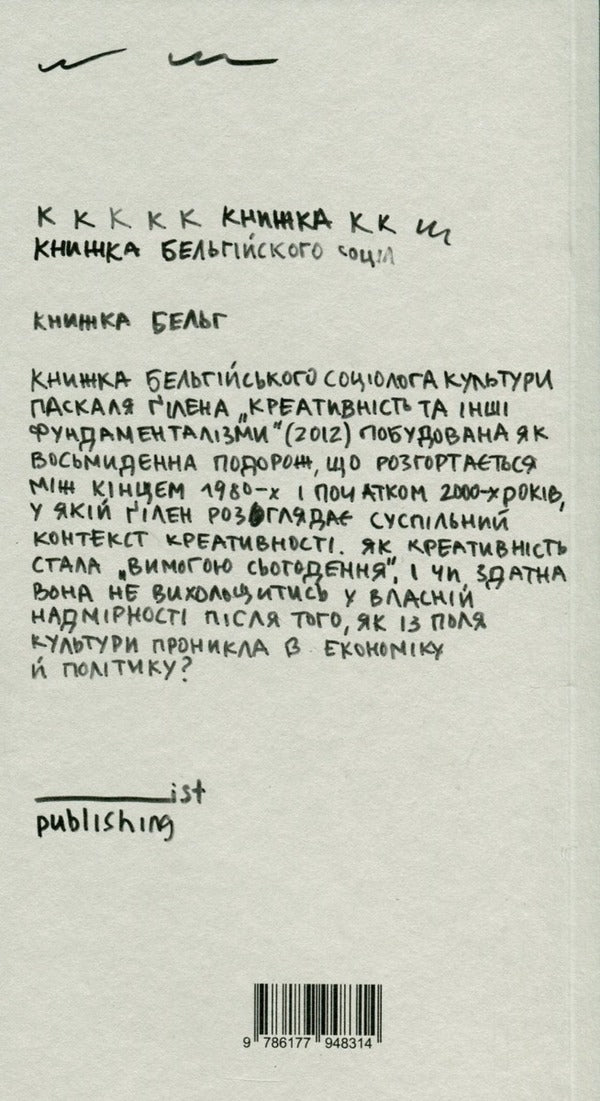 К К К К К КНИЖКА К К
КНИЖКА БЕЛЬГІЙСКОГО СОЦІЛ
КНИЖКА БЕЛЬГ
КНИЖКА БЕЛЬГІЙСЬКОГО СОЦІОЛОГА КУЛЬТУРИ
ПАСКАЛЯ ҐІЛЕНА „КРЕАТИВНІСТЬ ТА ІНШІ
ФУНДАМЕНТАЛІЗМИ“ (2012) ПОБУДОВАНА ЯК
ВОСЬМИДЕННА ПОДОРОЖ, ЩО РОЗГОРТАЄТЬСЯ
МІЖ КІНЦЕМ 1980-Х І ПОЧАТКОМ 2000-Х РОКІВ,
У ЯКІЙ ҐІЛЕН РОЗГЛЯДАЄ СУСПІЛЬНИЙ
КОНТЕКСТ КРЕАТИВНОСТІ. ЯК КРЕАТИВНІСТЬ
СТАЛА „ВИМОГОЮ СЬОГОДЕННЯ“, І ЧИ ЗДАТНА
ВОНА НЕ ВИХОЛОЩИТИСЬ У ВЛАСНІЙ
НАДМІРНОСТІ ПІСЛЯ ТОГО, ЯК ІЗ ПОЛЯ
КУЛЬТУРИ ПРОНИКЛА В ЕКОНОМІКУ
Й ПОЛІТИКУ?
_________ist
publishing
9 786177 948314